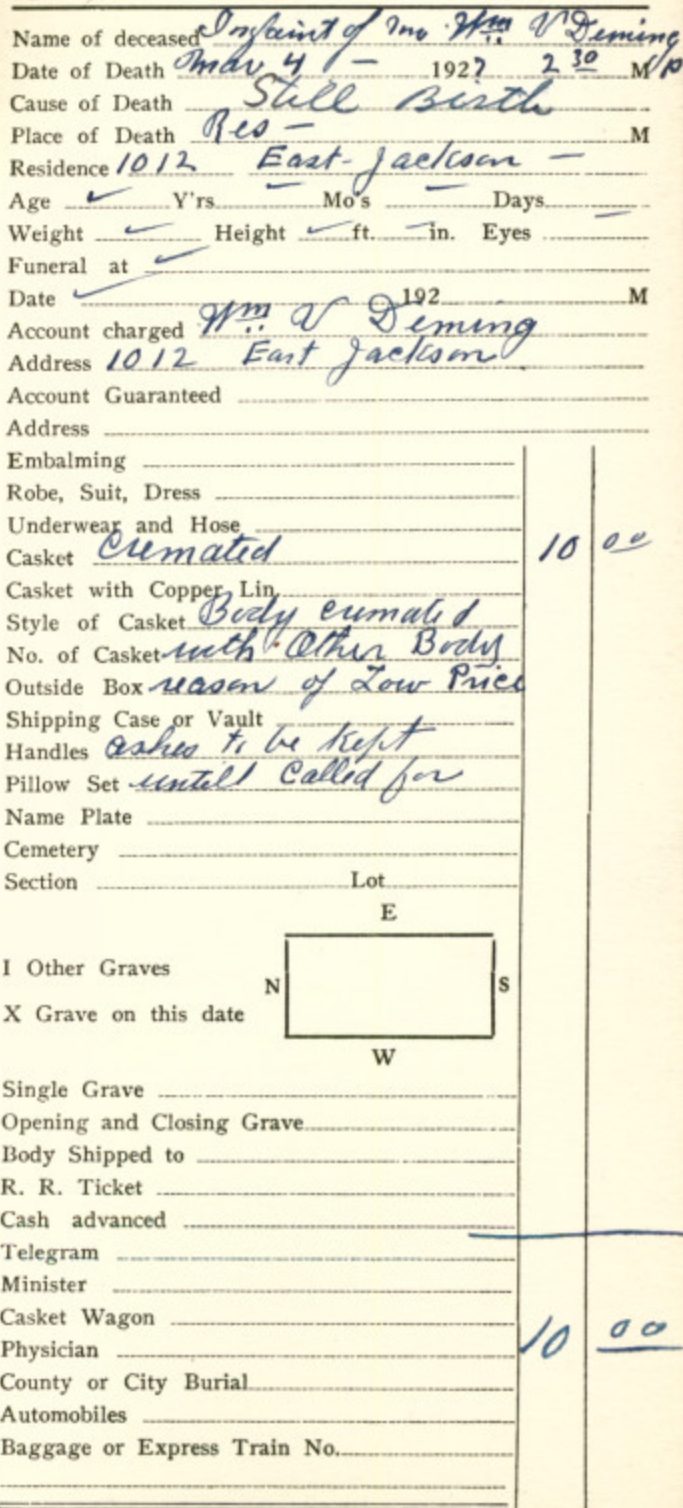 Name of deceased Infaint of Mr Wm V Deming
Date of Death Mar 4 - 1927 2 30 M P
Cause of Death Still Birth
Place of Death Res - M
Residence 1012 East Jackson -
Age ✓ Y'rs - Mo's - Days
Weight ✓ Height ✓ ft. - in. Eyes -
Funeral at ✓
Date ✓ 192 M
Account charged Wm V Deming
Address 1012 East Jackson
Account Guaranteed
Address
Embalming
Robe, Suit, Dress
Underwear and Hose
Casket Cremated 10 00
Casket with Copper Lin.
Style of Casket Body cremated
No. of Casket with Other Body
Outside Box reason of Low Price
Shipping Case or Vault
Handles ashes to be kept
Pillow Set untill Called for
Name Plate
Cemetery
Section Lot
E
I Other Graves
N S
X Grave on this date
W
Single Grave
Opening and Closing Grave
Body Shipped to
R. R. Ticket
Cash advanced
Telegram
Minister
Casket Wagon
Physician 10 00
County or City Burial
Automobiles
Baggage or Express Train No.